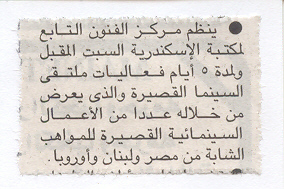 ● ينظم مركز الفنون التابع
لمكتبة الإسكندرية السبت المقبل
ولمدة ٥ أيام فعاليات ملتقى
السينما القصيرة والذى يعرض
من خلاله عددا من الأعمال
السينمائية القصيرة للمواهب
الشابة من مصر ولبنان وأوروبا.